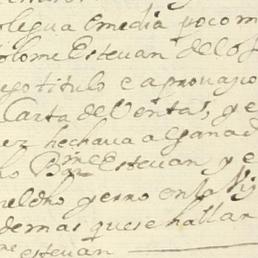 legua emedia pocom
olome Estevan de Los
ego titulo e aprovaçio
Carta de Venta, y e
ez hechava a Ganad
ho Bme Estevan y e
ueldho yerro en la Vi
demas que se hallan
estevan